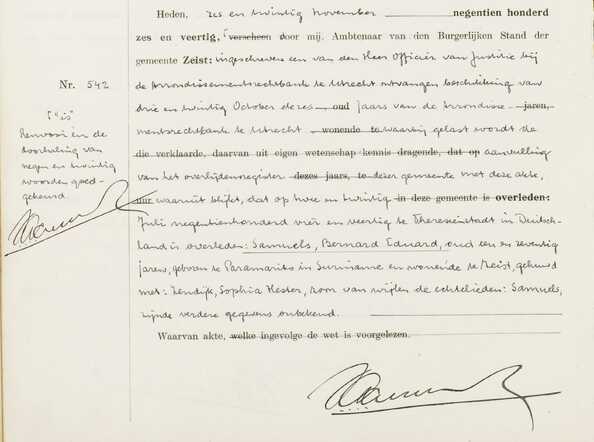 Heden, zes en twintig November negentien honderd
zes en veertig, verscheen door mij, Ambtenaar van den Burgerlijken Stand der
gemeente Zeist: ingeschreven een van den Heer Officier van Justitie bij
Nr. 542
de Arrondissementsrechtbank te Utrecht ontvangen beschikking van
drie en twintig October dezes oud jaars van de Arrondisse- jaren,
mentsrechtbank te Utrecht wonende te waarbij gelast wordt de
die verklaarde, daarvan uit eigen wetenschap kennis dragende, dat op aanvulling
van het overlijdensregister dezes jaars, te dezer gemeente met deze akte,
uur waaruit blijkt, dat op twee en twintig in deze gemeente is overleden:
Juli negentienhonderd vier en veertig te Theresienstadt in Deutsch-
land is overleden: Samuels, Bernard Eduard, oud een en zeventig
jaren, geboren te Paramaribo in Suriname en wonende te Zeist, gehuwd
met: Zendijk, Sophia Hester, zoon van wijlen de echtelieden: Samuels,
zijnde verdere gegevens onbekend.
Waarvan akte, welke ingevolge de wet is voorgelezen.
["is"
Renvooi en de
doorhaling van
negen en twintig
woorden goed-
gekeurd.